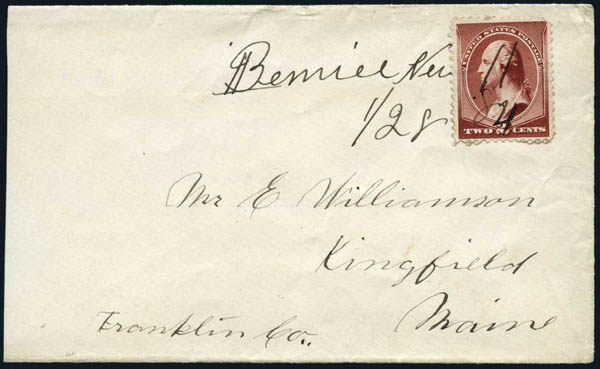 UNITED STATES POSTAGE
TWO CENTS
1/28
Mr E Williamson
Kingfield
Maine
Franklin Co..